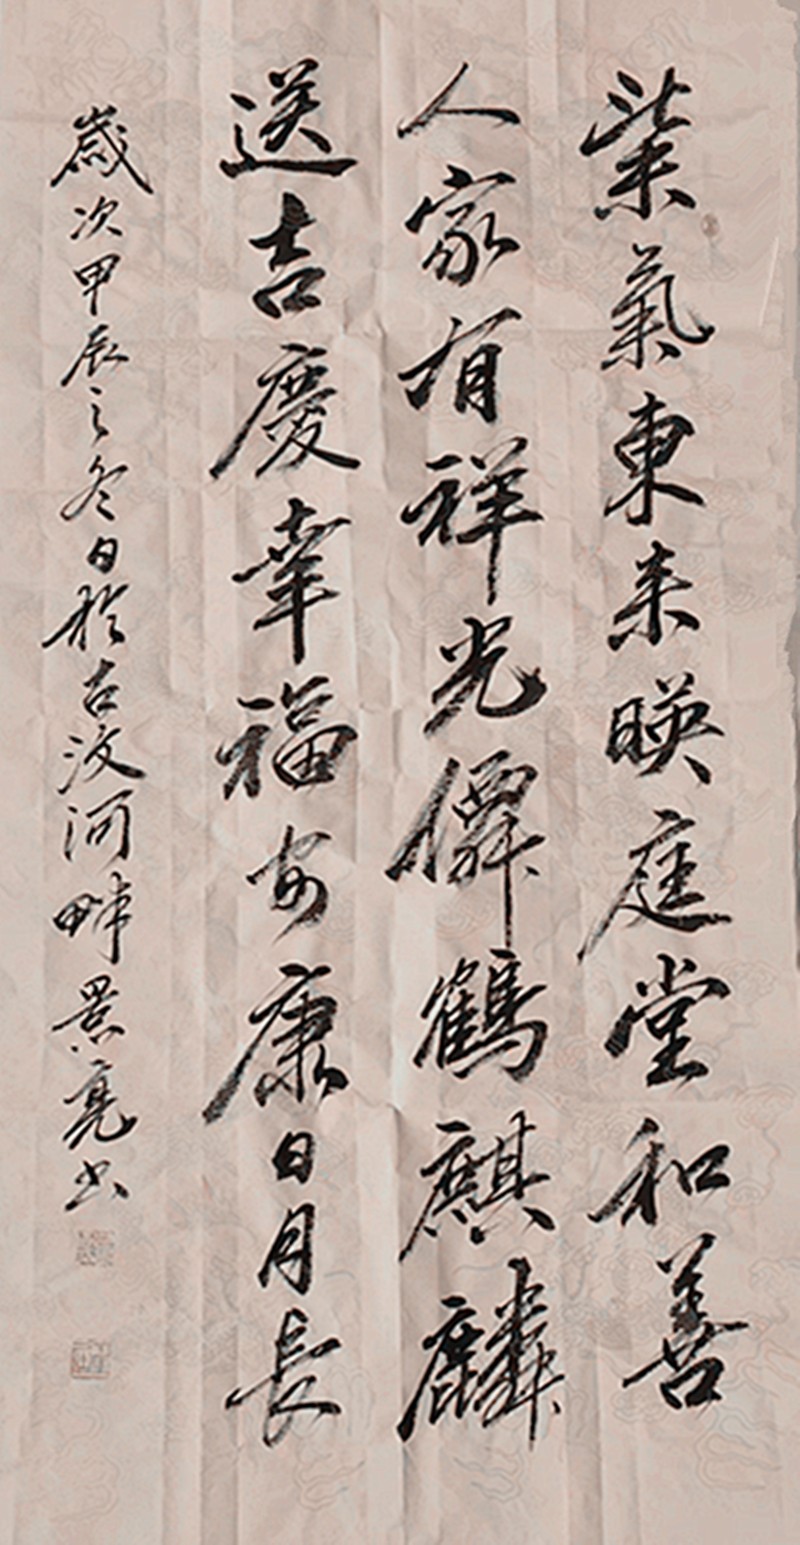 紫氣東来暎庭堂和善
人家有祥光僊鶴麒麟
送吉慶幸福安康日月長
歲次甲辰之冬日於古汶河畔景亮书